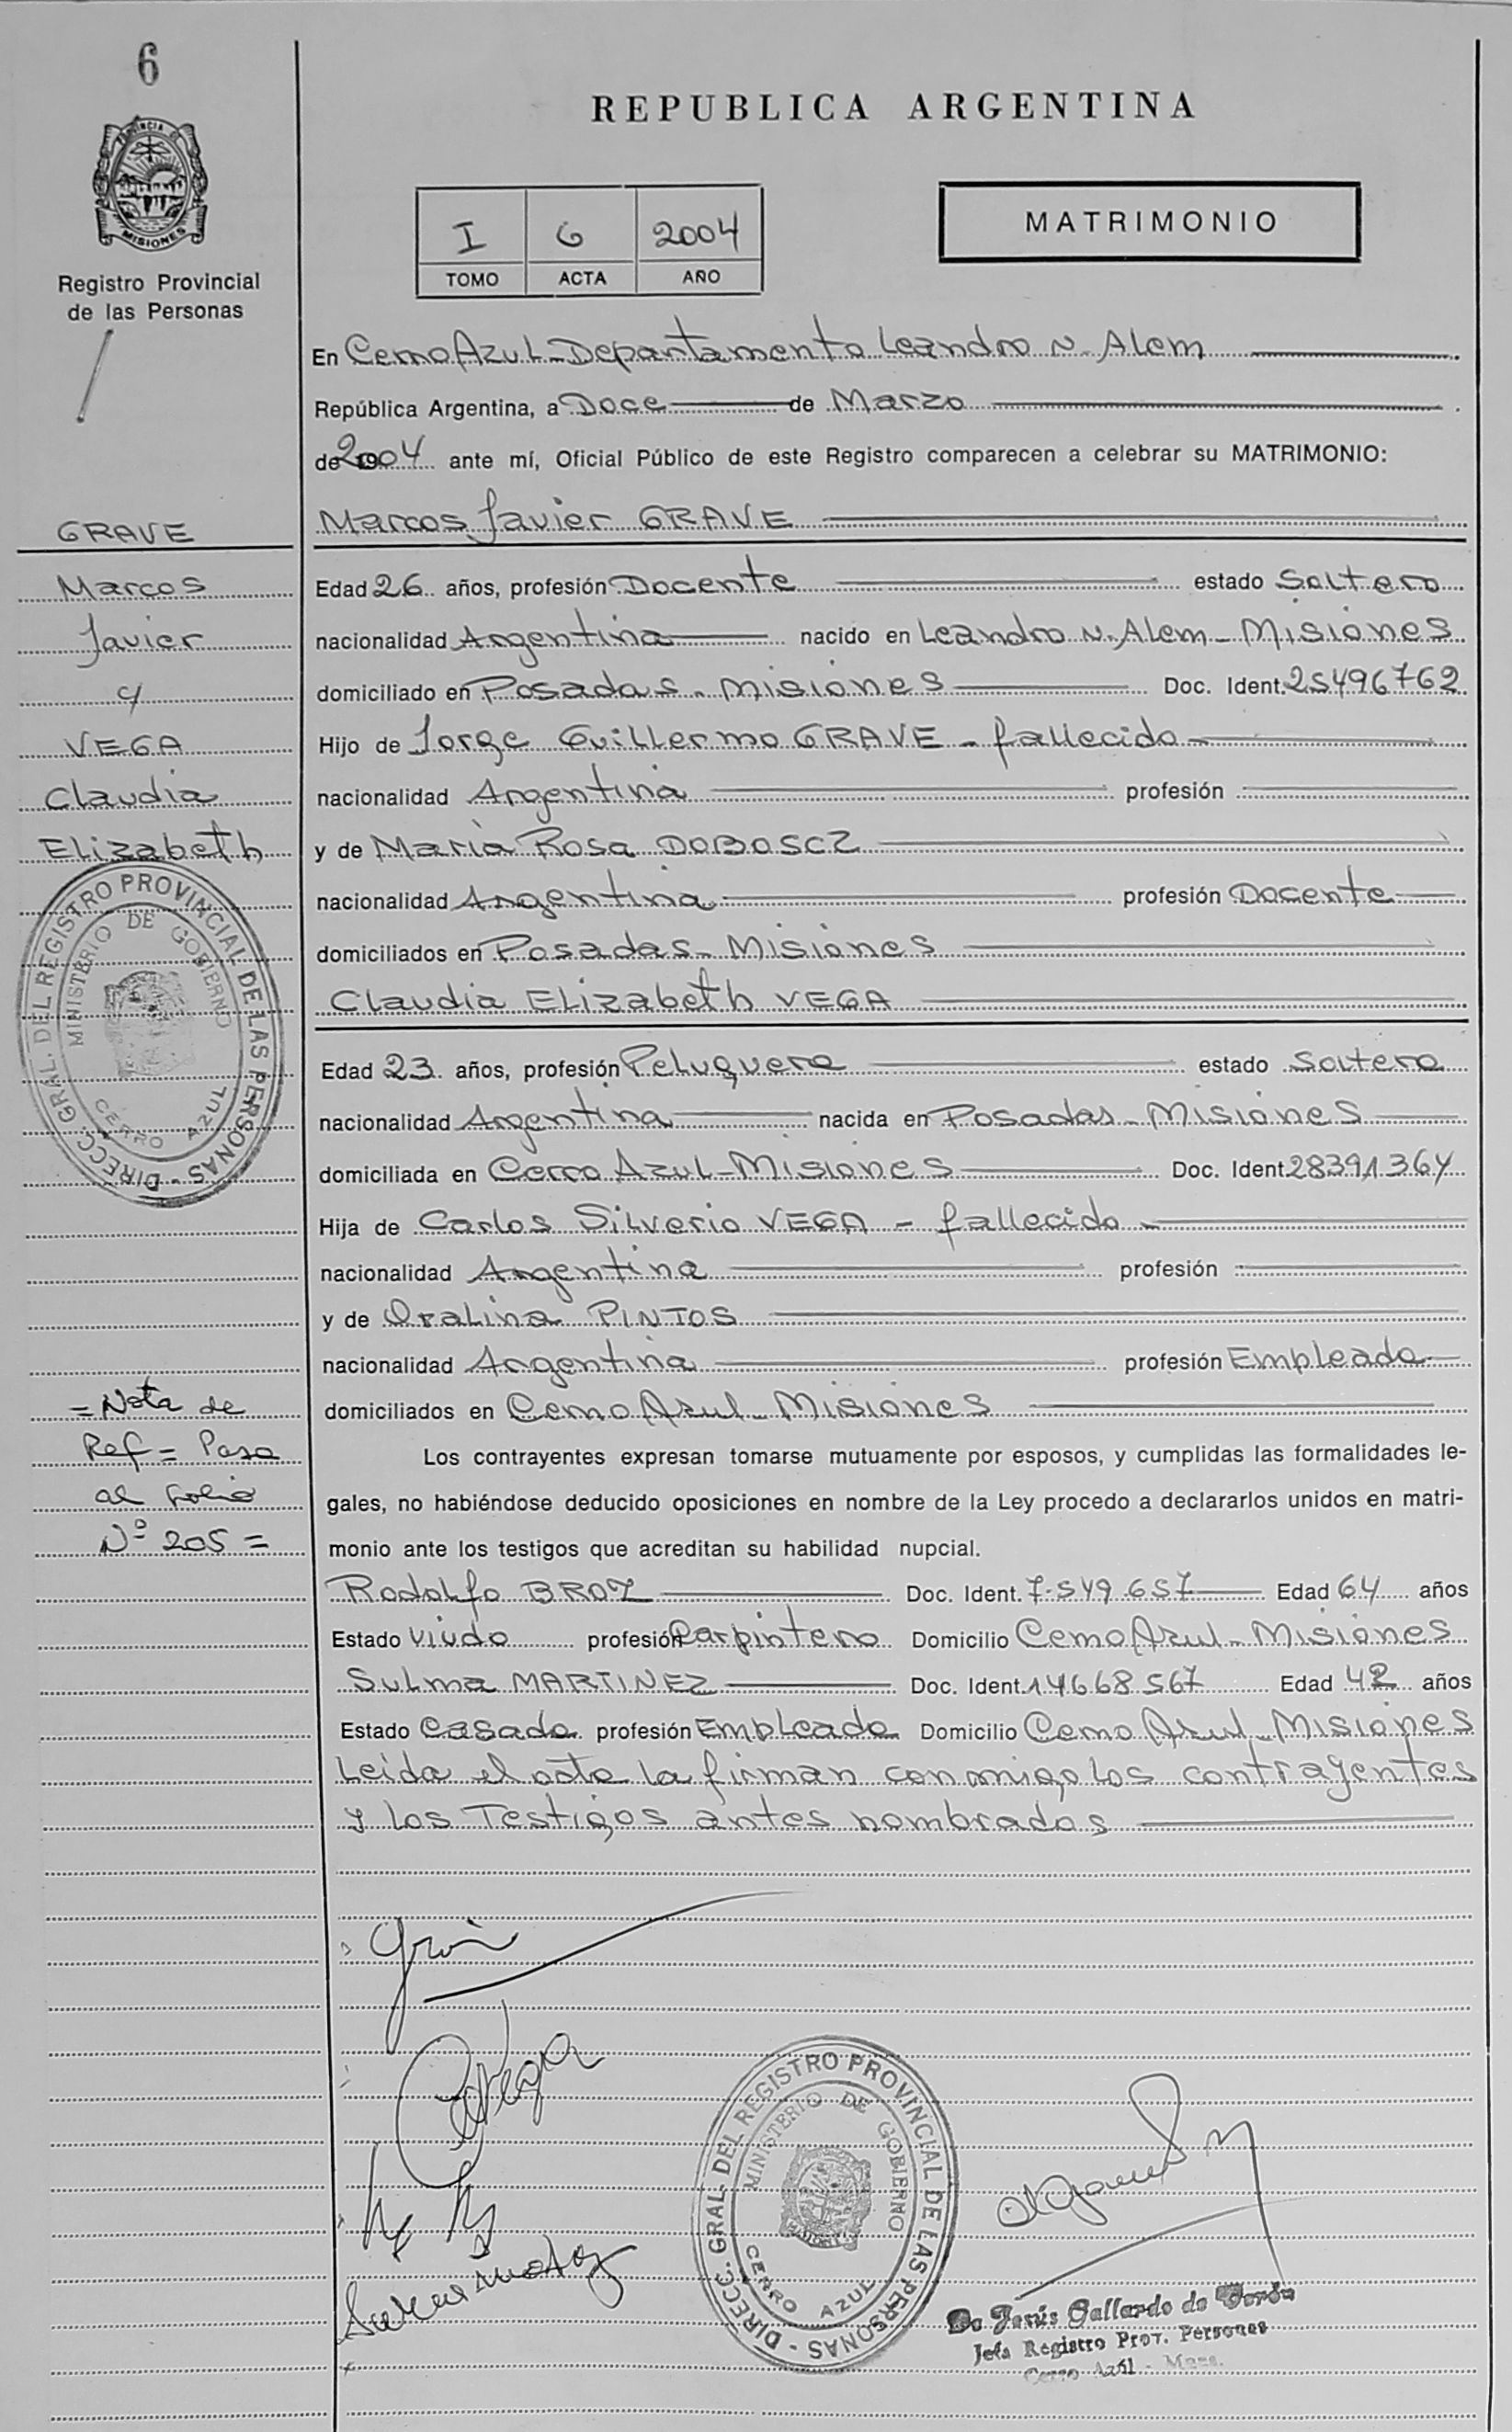 6
PROVINCIA DE
MISIONES
Registro Provincial
de las Personas
REPUBLICA ARGENTINA
I 6 2004
TOMO ACTA AÑO
MATRIMONIO
En Cerro Azul - Departamento Leandro N. Alem
República Argentina, a Doce de Marzo
de 2004 ante mí, Oficial Público de este Registro comparecen a celebrar su MATRIMONIO:
GRAVE
Marcos
Javier
c/
VEGA
Claudia
Elizabeth
Marcos Javier GRAVE
Edad 26 años, profesión Docente estado Soltero
nacionalidad Argentina nacido en Leandro N. Alem - Misiones
domiciliado en Posadas - Misiones Doc. Ident. 25496762
Hijo de Jorge Guillermo GRAVE - fallecido -
nacionalidad Argentina profesión
y de María Rosa DOBOSCZ
nacionalidad Argentina profesión Docente
domiciliados en Posadas - Misiones
Claudia Elizabeth VEGA
Edad 23 años, profesión Peluquera estado Soltera
nacionalidad Argentina nacida en Posadas - Misiones
domiciliada en Cerro Azul - Misiones Doc. Ident. 28391364
Hija de Carlos Silverio VEGA - fallecido -
nacionalidad Argentina profesión
y de Oralina PINTOS
nacionalidad Argentina profesión Empleada
domiciliados en Cerro Azul - Misiones
DIRECC. GRAL. DEL REGISTRO PROVINCIAL DE LAS PERSONAS
MINISTERIO DE GOBIERNO
CERRO AZUL
= Nota de
Ref = Pasa
al folio
Nº 205 =
Los contrayentes expresan tomarse mutuamente por esposos, y cumplidas las formalidades le-
gales, no habiéndose deducido oposiciones en nombre de la Ley procedo a declararlos unidos en matri-
monio ante los testigos que acreditan su habilidad nupcial.
Rodolfo BROZ Doc. Ident. 7.549.657 Edad 64 años
Estado Viudo profesión Carpintero Domicilio Cerro Azul - Misiones
Sulma MARTINEZ Doc. Ident. 14668567 Edad 42 años
Estado Casada profesión Empleada Domicilio Cerro Azul - Misiones
Leida el acta la firman conmigo los contrayentes
y los Testigos antes nombrados
DIRECC. GRAL. DEL REGISTRO PROVINCIAL DE LAS PERSONAS
MINISTERIO DE GOBIERNO
CERRO AZUL
Jesús Gallardo de
Jefa Registro Prov. Personas
Cerro Azúl - Mnes.